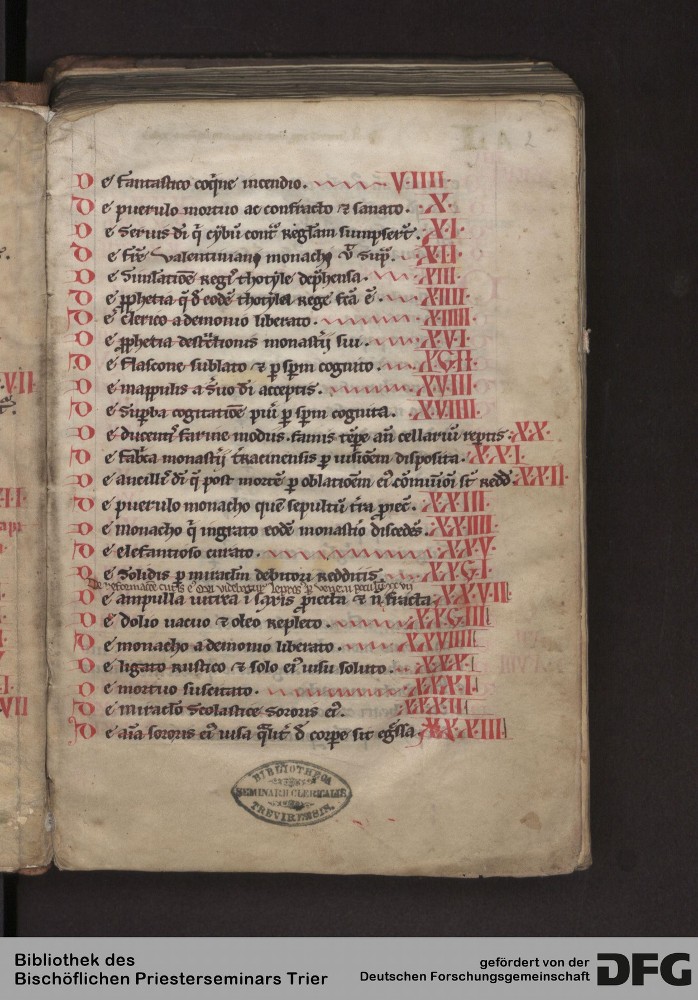 De fantastico coq̄ne incendio. V·IIII·
De puerulo mortuo ac confracto ⁊ sanato. ·X·
De Seruis dī q̄ cybū cont̄ Reglam sumpser̄t. X·I·
De fr̄e Valentiniani monachi ... sup̄. X·II·
De Simlatiōe Regis thotyle dep̄hensa. XIII·
De ꝓphetia q̄ d̄ eodē thotyla Rege fc̄a ē. XIIII·
De clerico a demonio liberato. X·IIIII·
De ꝓphetia destr̄ctionis monast̄ij sui. X·V·I·
De flascone sublato ⁊ ꝑ sp̄m cognito. X·V·II·
De mappulis a s̄uo dī acceptis. X·V·III·
De Suꝑba cogitatiōe pu̅i ꝑ sp̄m cognita. X·V·IIII·
De ducentis farine modiis famis tēpe an̄ cellariū reꝑtis. X·X·
De fab̄ca monast̄ij t̄racinensis ꝑ uisiōem disposita. X·X·I·
De ancillis dī q̄ post mortē ꝑ oblatiōem ei᷒ cōmuiōi s̄t Redd̄. XX·II·
De puerulo monacho quē sepultū t̄ra ꝓiec̄. X·X·III·
De monacho q̄ ingrato eodē monast̄io discedēs. X·X·IIII·
De elefantioso curato. X·X·V·
De Solidis ꝑ miraclm debitori Redditis. X·X·V·I·
De ampulla uitrea i saxis ꝓiecta ⁊ n̄ fracta. X·X·V·II·
De dolio uacuo ⁊ oleo Repleto. X·X·V·III·
De monacho a demonio liberato. XXVIIII·
De ligato Rustico ⁊ solo ei᷒ uisu soluto. X·X·X·
De mortuo suscitato. X·X·X·I·
De miraclo Scolastice Sororis ei᷒. X·X·X·II·
De aīa sororis ei᷒ uisa q̄lit̄ d̄ corꝑe sit eg̃ssa. X·X·X·III·
BIBLIOTHECA
SEMINARII CLERICALIS
TREVIRENSIS.
Bibliothek des
Bischöflichen Priesterseminars Trier
gefördert von der
Deutschen Forschungsgemeinschaft
DFG